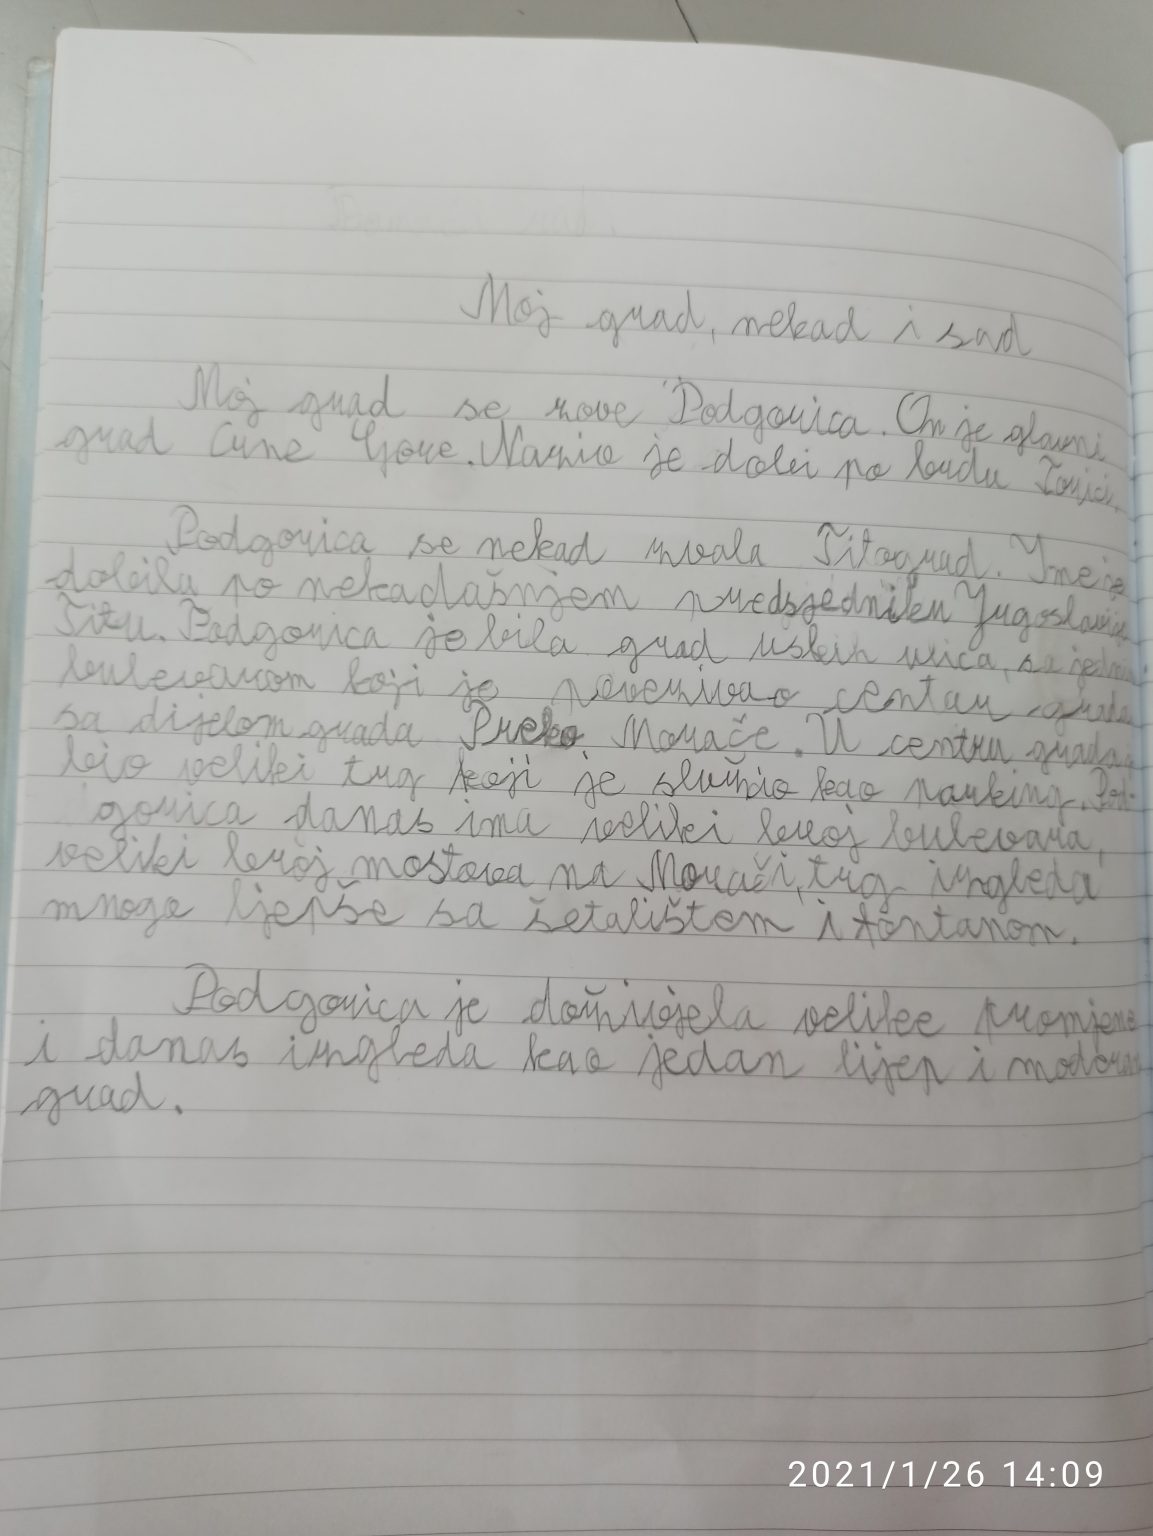 Moj grad, nekad i sad
Moj grad se zove Podgorica. On je glavni
grad Crne Gore. Naziv je dobi po brdu Gorici.
Podgorica se nekad zvala Titograd. Ime je
dobila po nekadašnjem predsjedniku Jugoslavije
Titu. Podgorica je bila grad uskih ulica, sa jednim
bulevarom koji je povezivao centar grada
sa dijelom grada Preko Morače. U centru grada je
bio veliki trg koji je služio kao parking. Pod-
gorica danas ima veliki broj bulevara,
veliki broj mostova na Morači, trg izgleda
mnogo ljepše sa šetalištem i fontanom.
Podgorica je doživjela velike promjene
i danas izgleda kao jedan lijep i moderan
grad.
2021/1/26 14:09